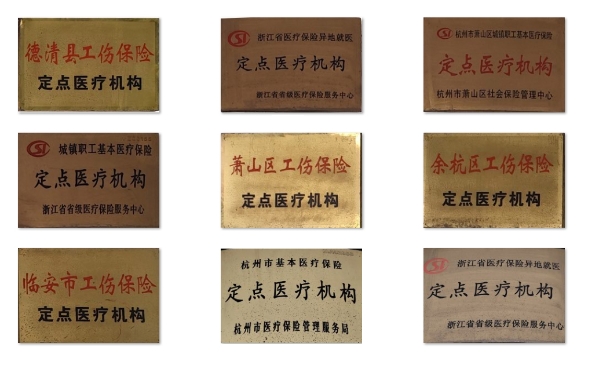 德清县工伤保险
定点医疗机构
浙江省医疗保险异地就医
定点医疗机构
浙江省省级医疗保险服务中心
杭州市萧山区城镇职工基本医疗保险
定点医疗机构
杭州市萧山区社会保险管理中心
城镇职工基本医疗保险
定点医疗机构
浙江省省级医疗保险服务中心
萧山区工伤保险
定点医疗机构
余杭区工伤保险
定点医疗机构
临安市工伤保险
定点医疗机构
杭州市基本医疗保险
定点医疗机构
杭州市医疗保险管理服务局
浙江省医疗保险异地就医
定点医疗机构
浙江省省级医疗保险服务中心